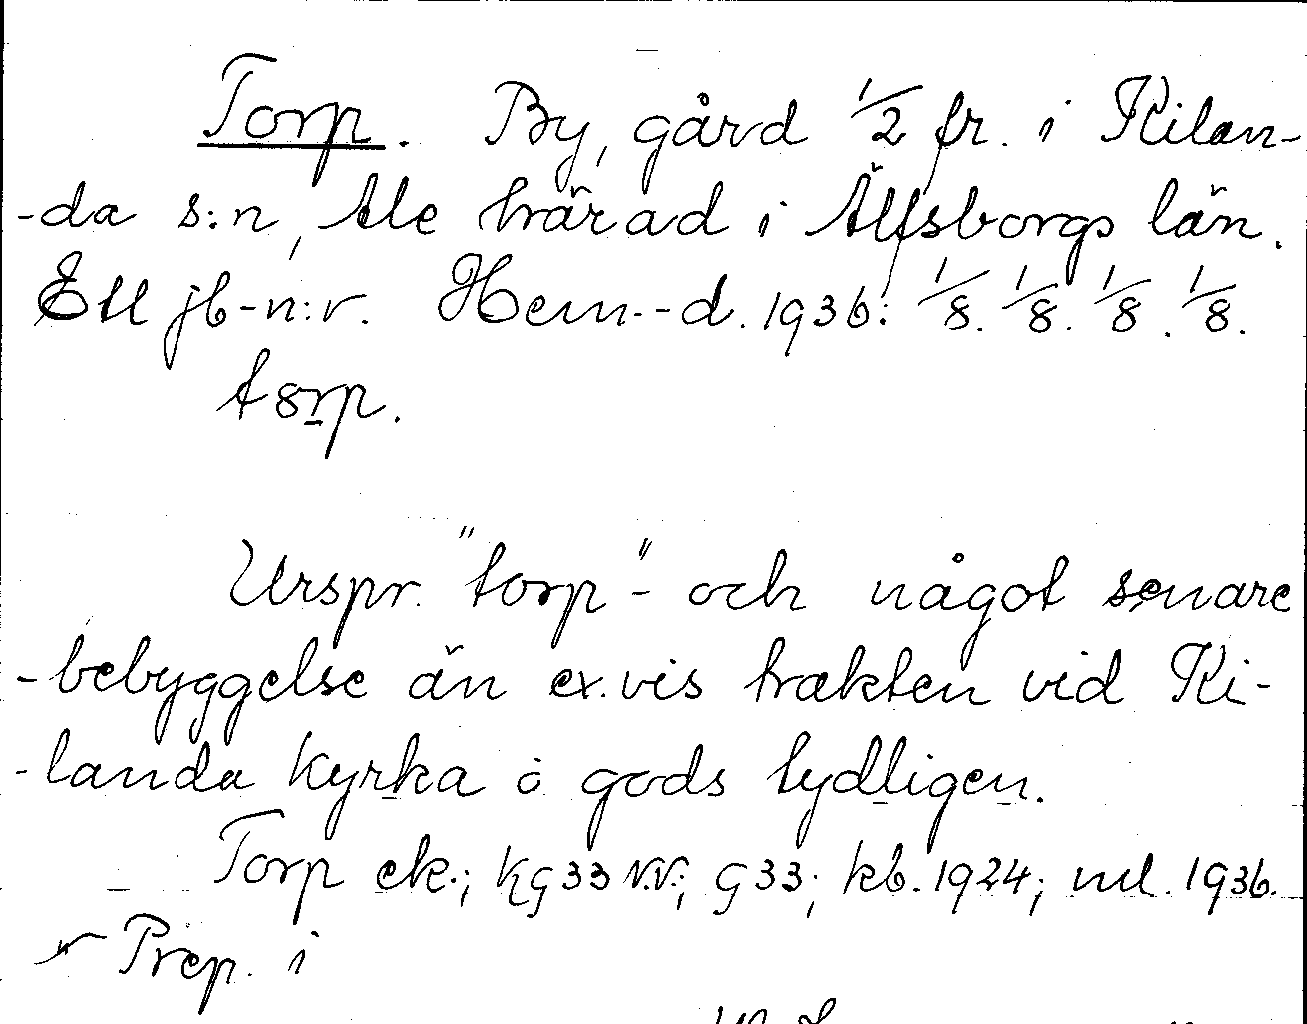 Torp. By, gård 1/2 fr. i Kilan-
-da s:n, Ale härad i Älfsborgs län.
Ett jb-n:r. Hem.-d. 1936: 1/8. 1/8. 1/8. 1/8.
tørp.
Urspr. "torp"- och något senare
-bebyggelse än ex.vis trakten vid Ki-
-landa kyrka o gods tydligen.
Torp ek.; kg 33 N.V.; g 33; kb. 1924; ml. 1936.
Prep. i